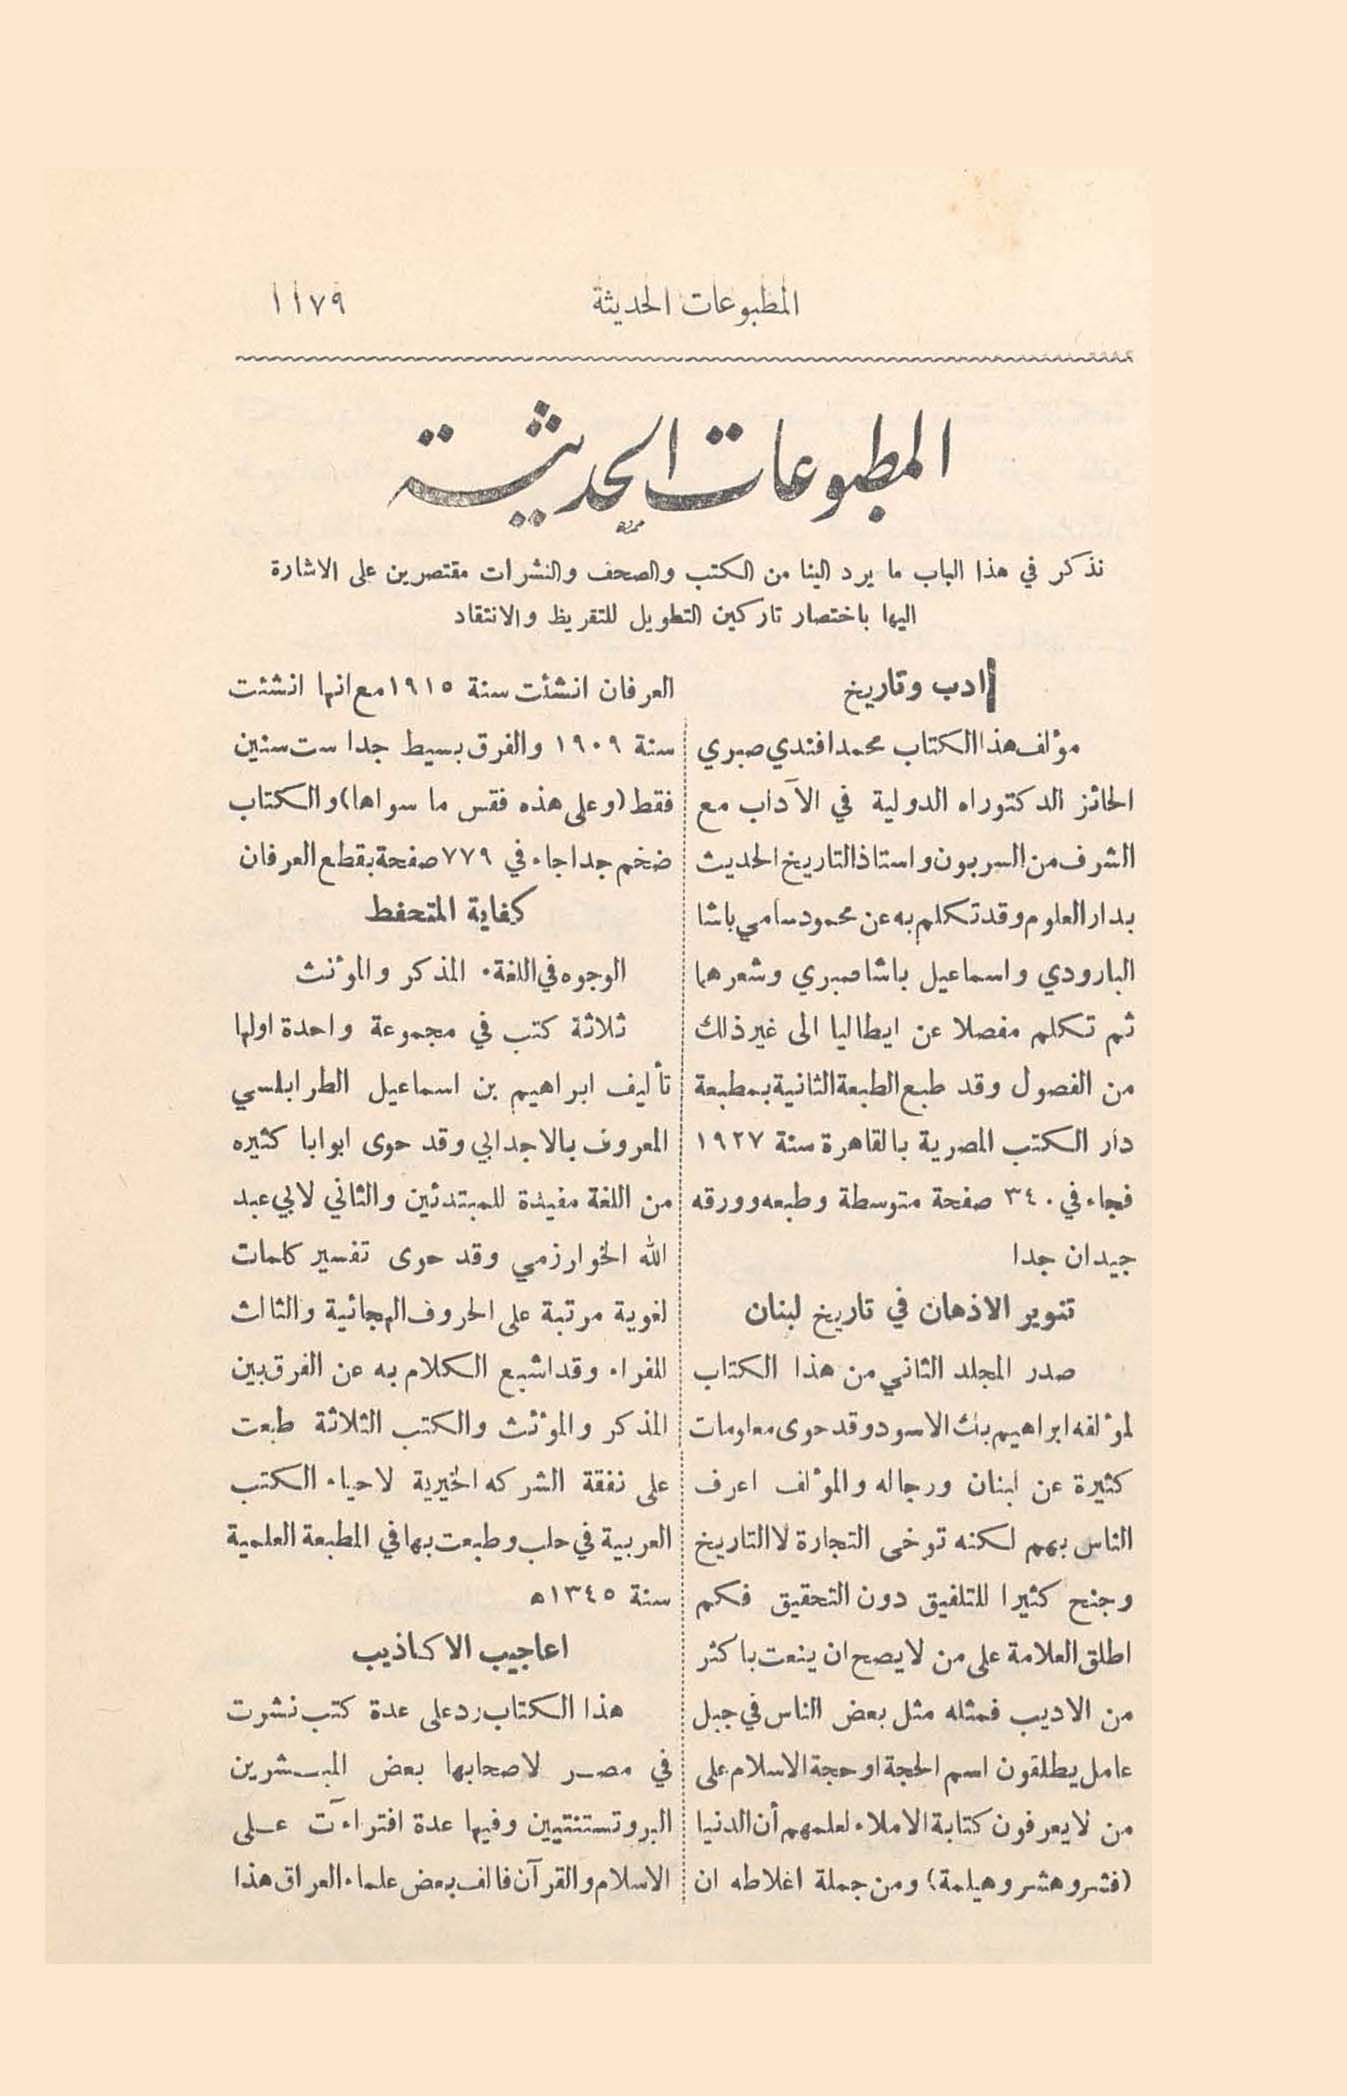 المطبوعات الحديثة
١١٧٩
المطبوعات الحديثة
نذكر في هذا الباب ما يرد الينا من الكتب والصحف والنشرات مقتصرين على الاشارة
اليها باختصار تاركين التطويل للتقريظ والانتقاد
ادب وتاريخ
مؤلف هذا الكتاب محمد افندي صبري
الحائز الدكتوراه الدولية في الآداب مع
الشرف من السربون واستاذ التاريخ الحديث
بدار العلوم وقد تكلم به عن محمود سامي باشا
البارودي واسماعيل باشا صبري وشعرهما
ثم تكلم مفصلا عن ايطاليا الى غير ذلك
من الفصول وقد طبع الطبعة الثانية بمطبعة
دار الكتب المصرية بالقاهرة سنة ١٩٢٧
فجاء في ٣٤٠ صفحة متوسطة وطبعه وورقه
جيدان جدا
تنوير الاذهان في تاريخ لبنان
صدر المجلد الثاني من هذا الكتاب
لمؤلفه ابراهيم بك الاسود وقد حوى معلومات
كثيرة عن لبنان ورجاله والمؤلف اعرف
الناس بهم لكنه توخى التجارة لا التاريخ
وجنح كثيرا للتلفيق دون التحقيق فكم
اطلق العلامة على من لا يصح ان ينعت باكثر
من الاديب فمثله مثل بعض الناس في جبل
عامل يطلقون اسم الحجة او حجة الاسلام على
من لا يعرفون كتابة الاملاء لعلمهم أن الدنيا
(فشر وهشر وهيلمة) ومن جملة اغلاطه ان
العرفان انشئت سنة ١٩١٥ مع انها انشئت
سنة ١٩٠٩ والفرق بسيط جدا ست سنين
فقط (وعلى هذه فقس ما سواها) والكتاب
ضخم جدا جاء في ٧٧٩ صفحة بقطع العرفان
كفاية المتحفط
الوجوه في اللغة . المذكر والمؤنث
ثلاثة كتب في مجموعة واحدة اولها
تأليف ابراهيم بن اسماعيل الطرابلسي
المعروف بالاجدابي وقد حوى ابوابا كثيره
من اللغة مفيدة للمبتدئين والثاني لابي عبد
الله الخوارزمي وقد حوى تفسير كلمات
لغوية مرتبة على الحروف الهجائية والثالث
للفراء وقد اشبع الكلام به عن الفرق بين
المذكر والمؤنث والكتب الثلاثة طبعت
على نفقة الشركه الخيرية لاحياء الكتب
العربية في حلب وطبعت بها في المطبعة العلمية
سنة ١٣٤٥ه
اعاجيب الاكاذيب
هذا الكتاب رد على عدة كتب نشرت
في مصر لاصحابها بعض المبشرين
البروتستنتيين وفيها عدة افتراءآت على
الاسلام والقرآن فالف بعض علماء العراق هذا